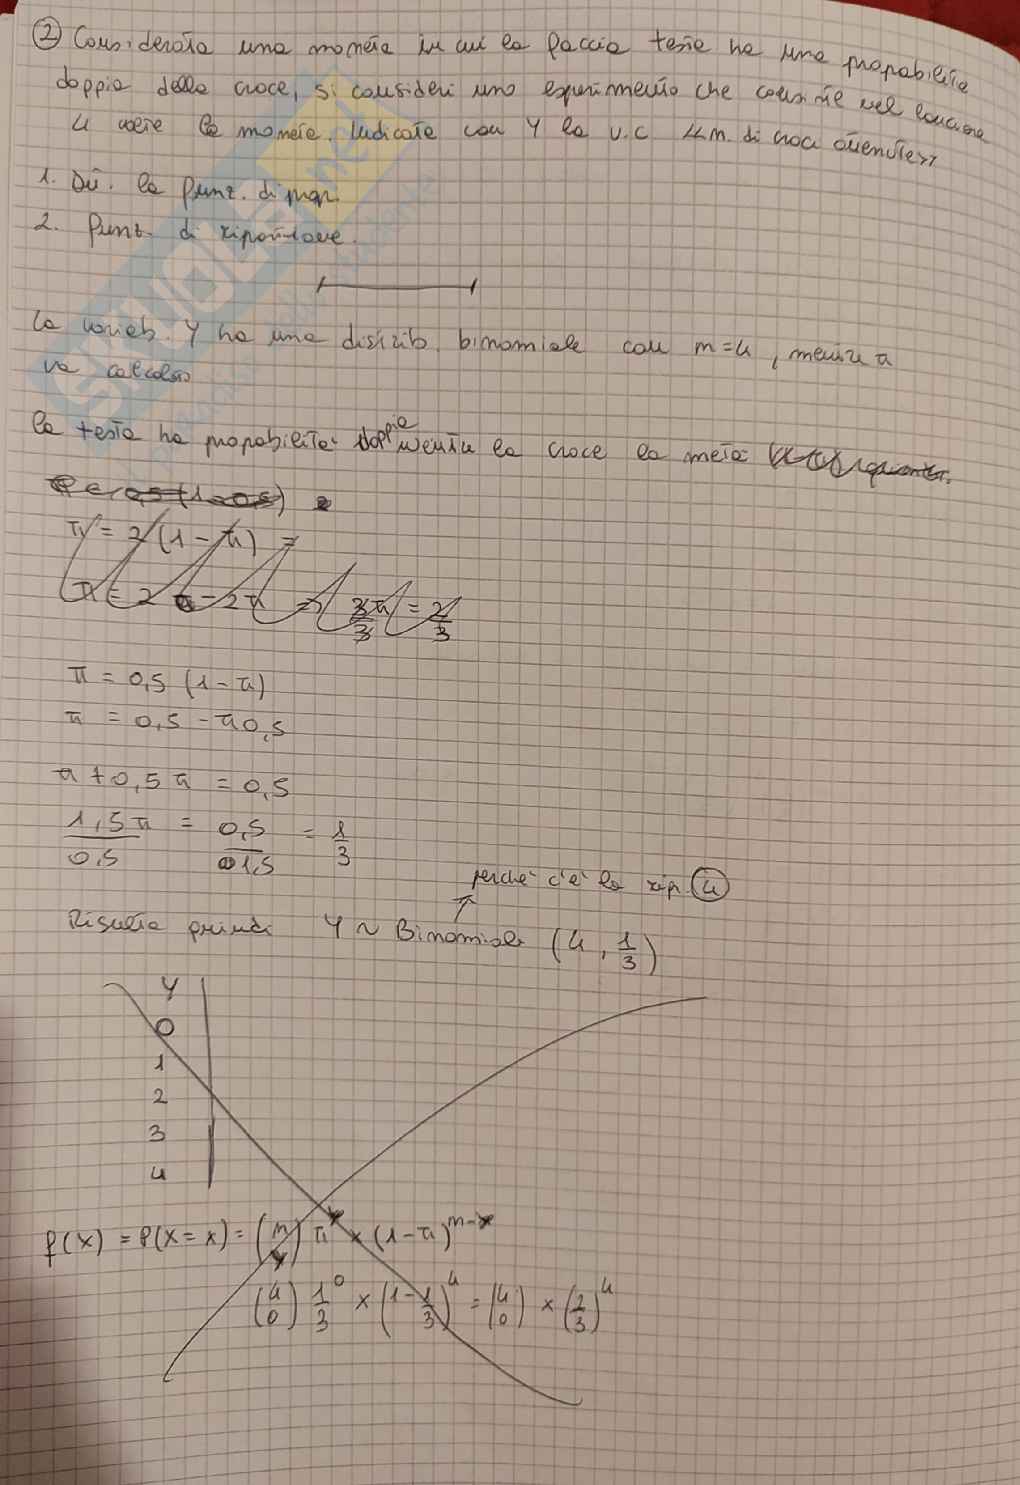 ② Considerata una moneta in cui la faccia testa ha una probabilità
doppia della croce, si consideri uno esperimento che consiste nel lanciare
4 volte la moneta. Indicata con Y la v.c. num. di croci ottenute
1. Det. la funz. di prop.
2. Funz. di ripartizione.
la variab. Y ha una distrib. binomiale con n=4, mentre π
va calcolato
la testa ha probabilità doppia mentre la croce la metà
π = 2 (1 - π) =
π = 2 - 2π => 3π/3 = 2/3
π = 0,5 (1 - π)
π = 0,5 - π0,5
π + 0,5 π = 0,5
1,5π/0,5 = 0,5/1,5 = 1/3
perché c'è la rip. 4
Risulta quindi Y ~ Binomiale (4, 1/3)
Y
0
1
2
3
4
f(X) = P(X = x) = (n x) π^x × (1 - π)^n-x
(4 0) 1/3^0 × (1 - 1/3)^4 = (4 0) × (2/3)^4
SKUOLA.net